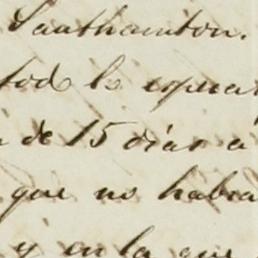 Southamton.
tod lo espera
de 15 dias a
que no habia
y en la que